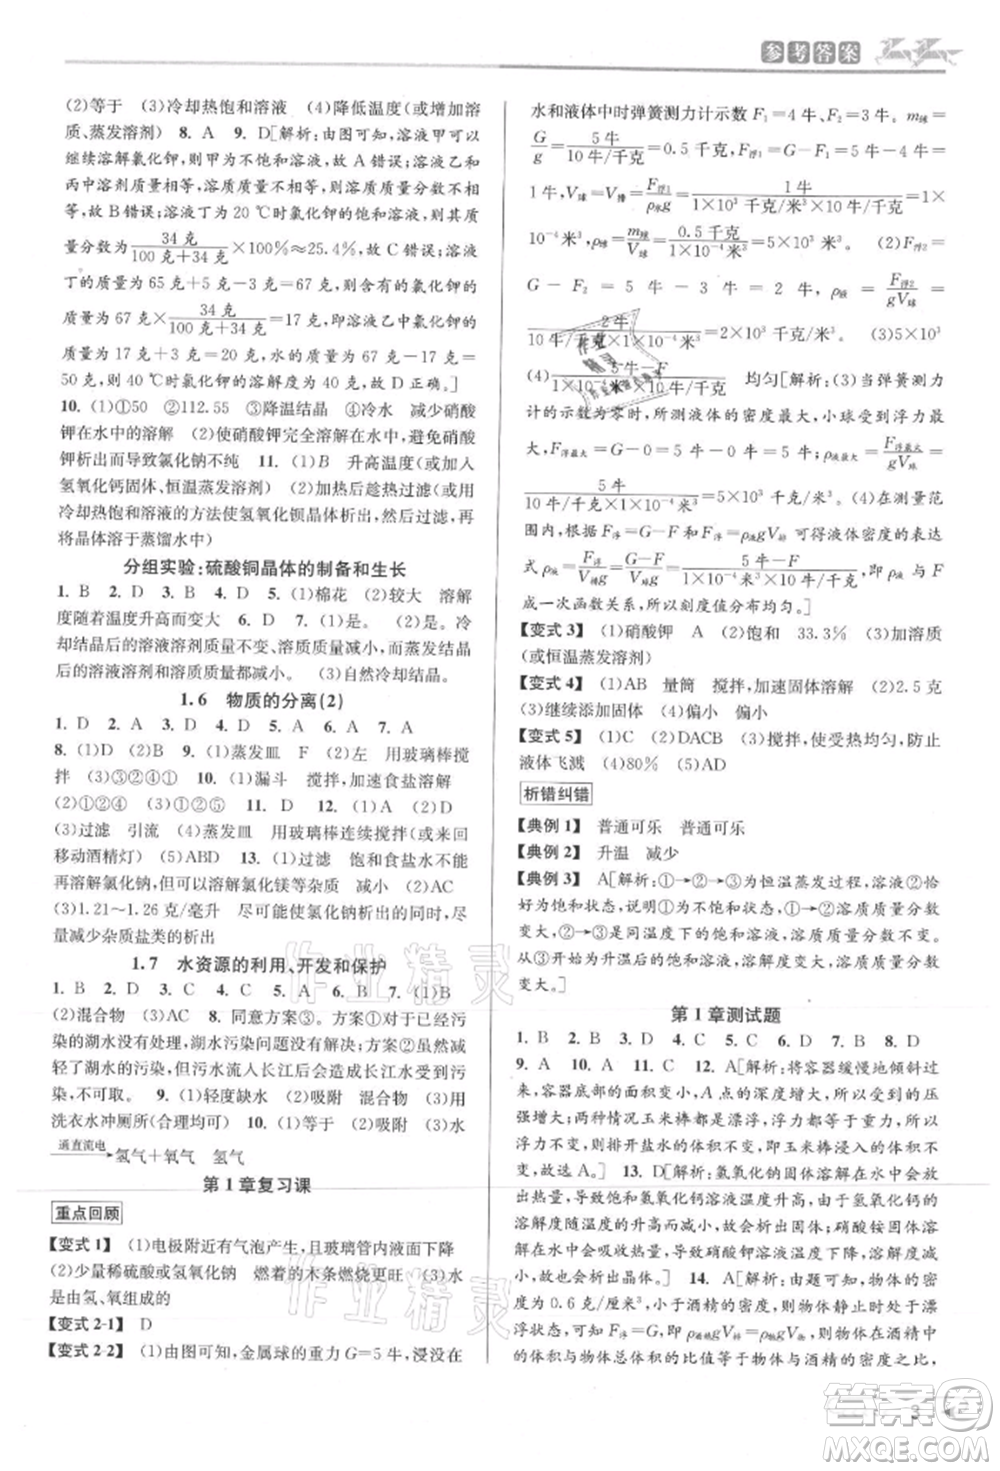 参考答案
(2)等于 (3)冷却热饱和溶液 (4)降低温度(或增加溶
质、蒸发溶剂) 8. A 9. D[解析:由图可知,溶液甲可以
继续溶解氯化钾,为不饱和溶液,故 A 错误;溶液乙和
丙中溶剂质量相等,溶质质量不相等,溶质质量分数不相
等,故 B 错误;溶液丁为 20 ℃时氯化钾的饱和溶液,其质
量分数为34 克/(100 克+34 克)×100%≈25.4%,故 C 错误;溶液
丁的质量为 65 克+5 克-3 克=67 克,其中氯化钾的
质量为 67 克×34 克/(100 克+34 克)=17 克,即溶液乙中氯化钾的
质量为 17 克+3 克=20 克,水的质量为 67 克-17 克=
50 克,因此 20 ℃时氯化钾的溶解度为 34 克,故 D 正确。]
10. (1)①50 ②112.55 ③降温结晶 ④冷水 减少硝酸
钾在水中的溶解 (2)使硝酸钾完全溶解在水中,避免硝酸
钾析出而导致氯化钠不纯 11. (1)B 升高温度(或加入
氢氧化钙固体、恒温蒸发溶剂) (2)析出后趁热过滤(或用
冷却热饱和溶液的方法使氢氧化钡晶体析出,过滤后,
再将晶体溶于蒸馏水中)
分组实验:硫酸铜晶体的制备和生长
1. B 2. D 3. B 4. A 5. (1)棉花 (2)较大 溶解
度随着温度升高而变大 6. D 7. (1)是。 (2)是。冷
却结晶后的溶液溶剂质量不变、溶质质量减小,蒸发结晶
后的溶液溶剂和溶质质量都减小。 (3)自然冷却结晶。
1.6 物质的分离(2)
1. D 2. A 3. D 4. D 5. D 6. A 7. A
8. (1)D (2)B 9. (1)蒸发皿 F (2)左 用玻璃棒搅
拌 (3)③②④① 10. (1)漏斗 搅拌,加速食盐溶解
(2)②①⑤③④ 11. D 12. (1)称量 (2)溶解
(3)过滤 引流 (4)蒸发皿 用玻璃棒连续搅拌(或来回
移动酒精灯) (5)ABD 13. (1)过滤 饱和食盐水不能
再溶解氯化钠,但可以溶解氯化镁等杂质 (2)AC
(3)1.21~1.26 克/毫升 尽可能使氯化钠结晶析出,尽
量减少杂质盐类的析出
1.7 水资源的利用、开发和保护
1. B 2. D 3. C 4. B 5. A 6. A 7. (1)B
(2)混合物 (3)AC 8. 同意方案③。方案①已经受污
染的湖水没有处理,湖水污染没有得到控制;方案②受污
染的湖水流入长江后,将对下游造成污染;方案③能使湖
水得到治理。 9. (1)轻度缺水 (2)吸附 混合物 (3)用
洗衣水冲厕所(合理均可) 10. (1)等于 (2)吸附 (3)水
通直流电→氢气+氧气 氢气
第 1 章复习课
重点回顾
【变式 1】 (1)电极附近有气泡产生,且玻璃管内液面下降
(2)少量稀硫酸或氢氧化钠 燃着的木条燃烧更旺 (3)水
是由氢、氧组成的
【变式 2-1】 D
【变式 2-2】 (1)由图可知,金属球的重力 G=5 牛,浸没在
水和液体中时弹簧测力计示数 F₁=4 牛、F₂=3 牛。m球=
G/g=5 牛/(10 牛/千克)=0.5 千克,F浮1=G-F₁=5 牛-4 牛=
1 牛,V球=V排=F浮1/(ρ水g)=1 牛/(1×10³ 千克/米³×10 牛/千克)=1×
10⁻⁴ 米³,ρ球=m球/V球=0.5 千克/(1×10⁻⁴ 米³)=5×10³ 千克/米³。 (2)F浮2=
G-F₂=5 牛-3 牛=2 牛,ρ液=F浮2/(gV球)=
2 牛/(10 牛/千克×1×10⁻⁴ 米³)=2×10³ 千克/米³。 (3)5×10³
(4)(5 牛-F)/(1×10⁻³ 米⁴·牛/千克) 均匀[解析:(3)当弹簧测力
计的示数为零时,所测液体的密度最大,小球受浮力最
大,F浮最大=G-0=5 牛-0=5 牛;ρ液最大=F浮最大/(gV球)=
5 牛/(10 牛/千克×1×10⁻⁴ 米³)=5×10³ 千克/米³。(4)在测量范
围内,小球浸没,根据 F浮=G-F=ρ液gV排可得液体密度的表达
式 ρ液=F浮/(V排g)=(G-F)/(V球g)=(5 牛-F)/(1×10⁻³ 米⁴·牛/千克),即 ρ液 与 F
成一次函数关系,所以刻度值分布均匀。]
【变式 3】 (1)硝酸钾 A (2)饱和 33.3% (3)加溶质
(或恒温蒸发溶剂)
【变式 4】 (1)AB 量筒 搅拌,加速固体溶解 (2)2.5 克
(3)继续添加固体 (4)偏小 偏小
【变式 5】 (1)C (2)DACB (3)搅拌,使受热均匀,防止
液体飞溅 (4)80% (5)AD
析错纠错
【典例 1】 普通可乐 普通可乐
【典例 2】 升温 减少
【典例 3】 A[解析:①→②→③为恒温蒸发过程,溶液②恰
好为饱和状态,故溶质质量分数①→②变大,②→③不变;
从①→③是同温度下的不饱和溶液变为饱和溶液,溶质质量分数变大。
所以③中溶质的质量分数比①中溶质的质量分数
变大。]
第 1 章测试题
1. B 2. B 3. D 4. C 5. C 6. D 7. B 8. D
9. A 10. A 11. D 12. A[解析:将容器缓慢地倾斜过
来,容器底部的面积变大,A 点的深度增大,受到的压
强增大;两种情况下玉米棒都是漂浮,浮力都等于重力,所以
浮力不变,则排开盐水的体积不变,即玉米棒露出水面的体积不
变,故选 A。] 13. D[解析:氢氧化钠固体溶解在水中会放
出热量,导致饱和氢氧化钙溶液温度升高,由于氢氧化钙的
溶解度随温度的升高而减小,所以有晶体析出;硝酸铵固体溶解
吸热,温度降低,硝酸钾溶液温度降低,溶解度减小,
有晶体析出。 14. A[解析:由题可知,物体的密度
为 0.6 克/厘米³,小于酒精的密度,所以物体静止时处于漂
浮状态,则 F浮=G,即 ρ酒精gV排=ρ物gV物,浸入酒精
中的体积与物体总体积的比值等于物体密度与酒精密度之比,故
3
作业精灵
作业精灵
答案圈
MXQE.COM